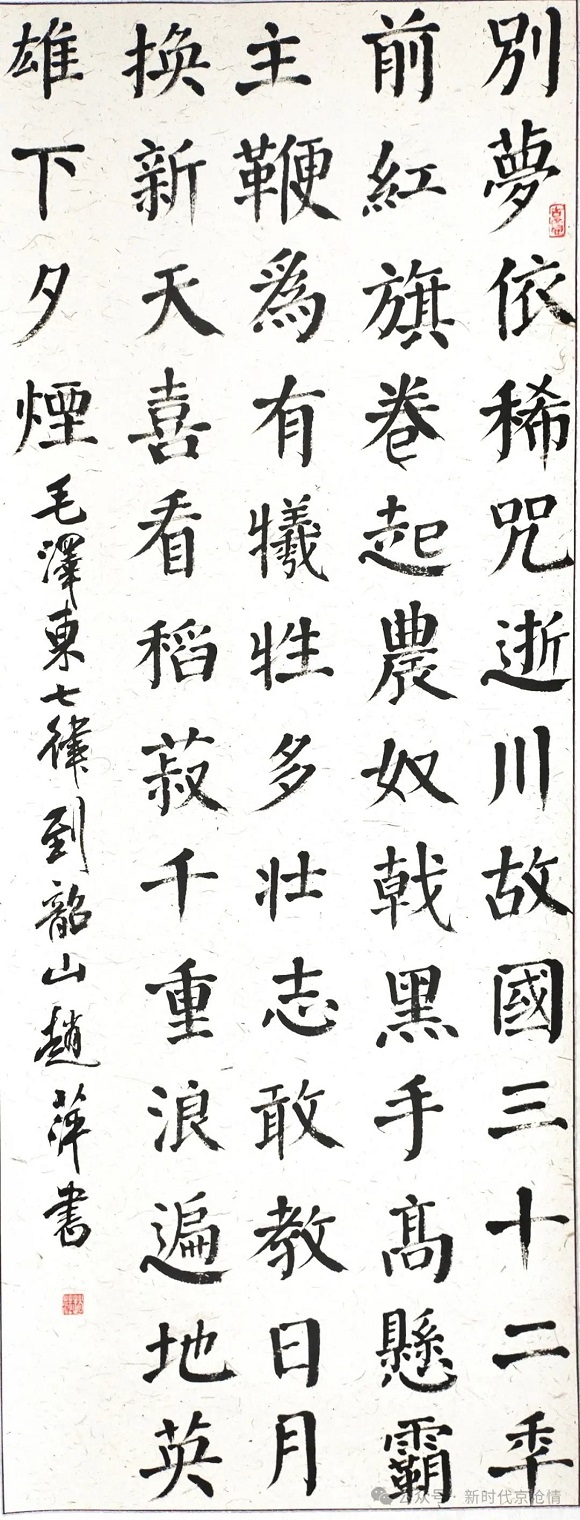 別夢依稀咒逝川故國三十二年
前紅旗卷起農奴戟黑手高懸霸
主鞭為有犧牲多壯志敢教日月
換新天喜看稻菽千重浪遍地英
雄下夕煙
毛澤東七律到韶山趙萍書
公众号·新时代京沧情